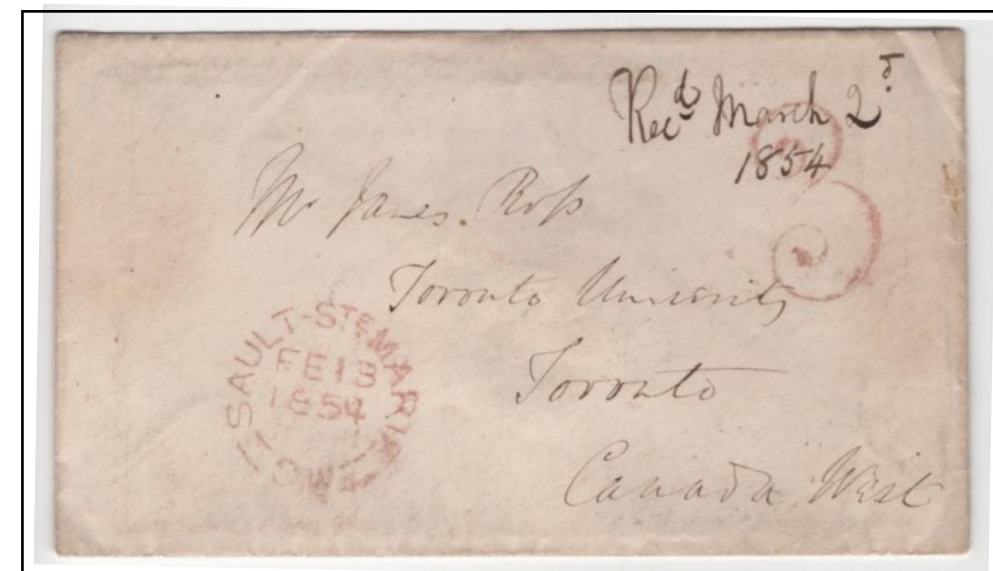 Rec^d March 2^d
1854
3
Mr James Ross
Toronto University
Toronto
Canada West
SAULT-STE MARIE
FE 13
1854
C.W.